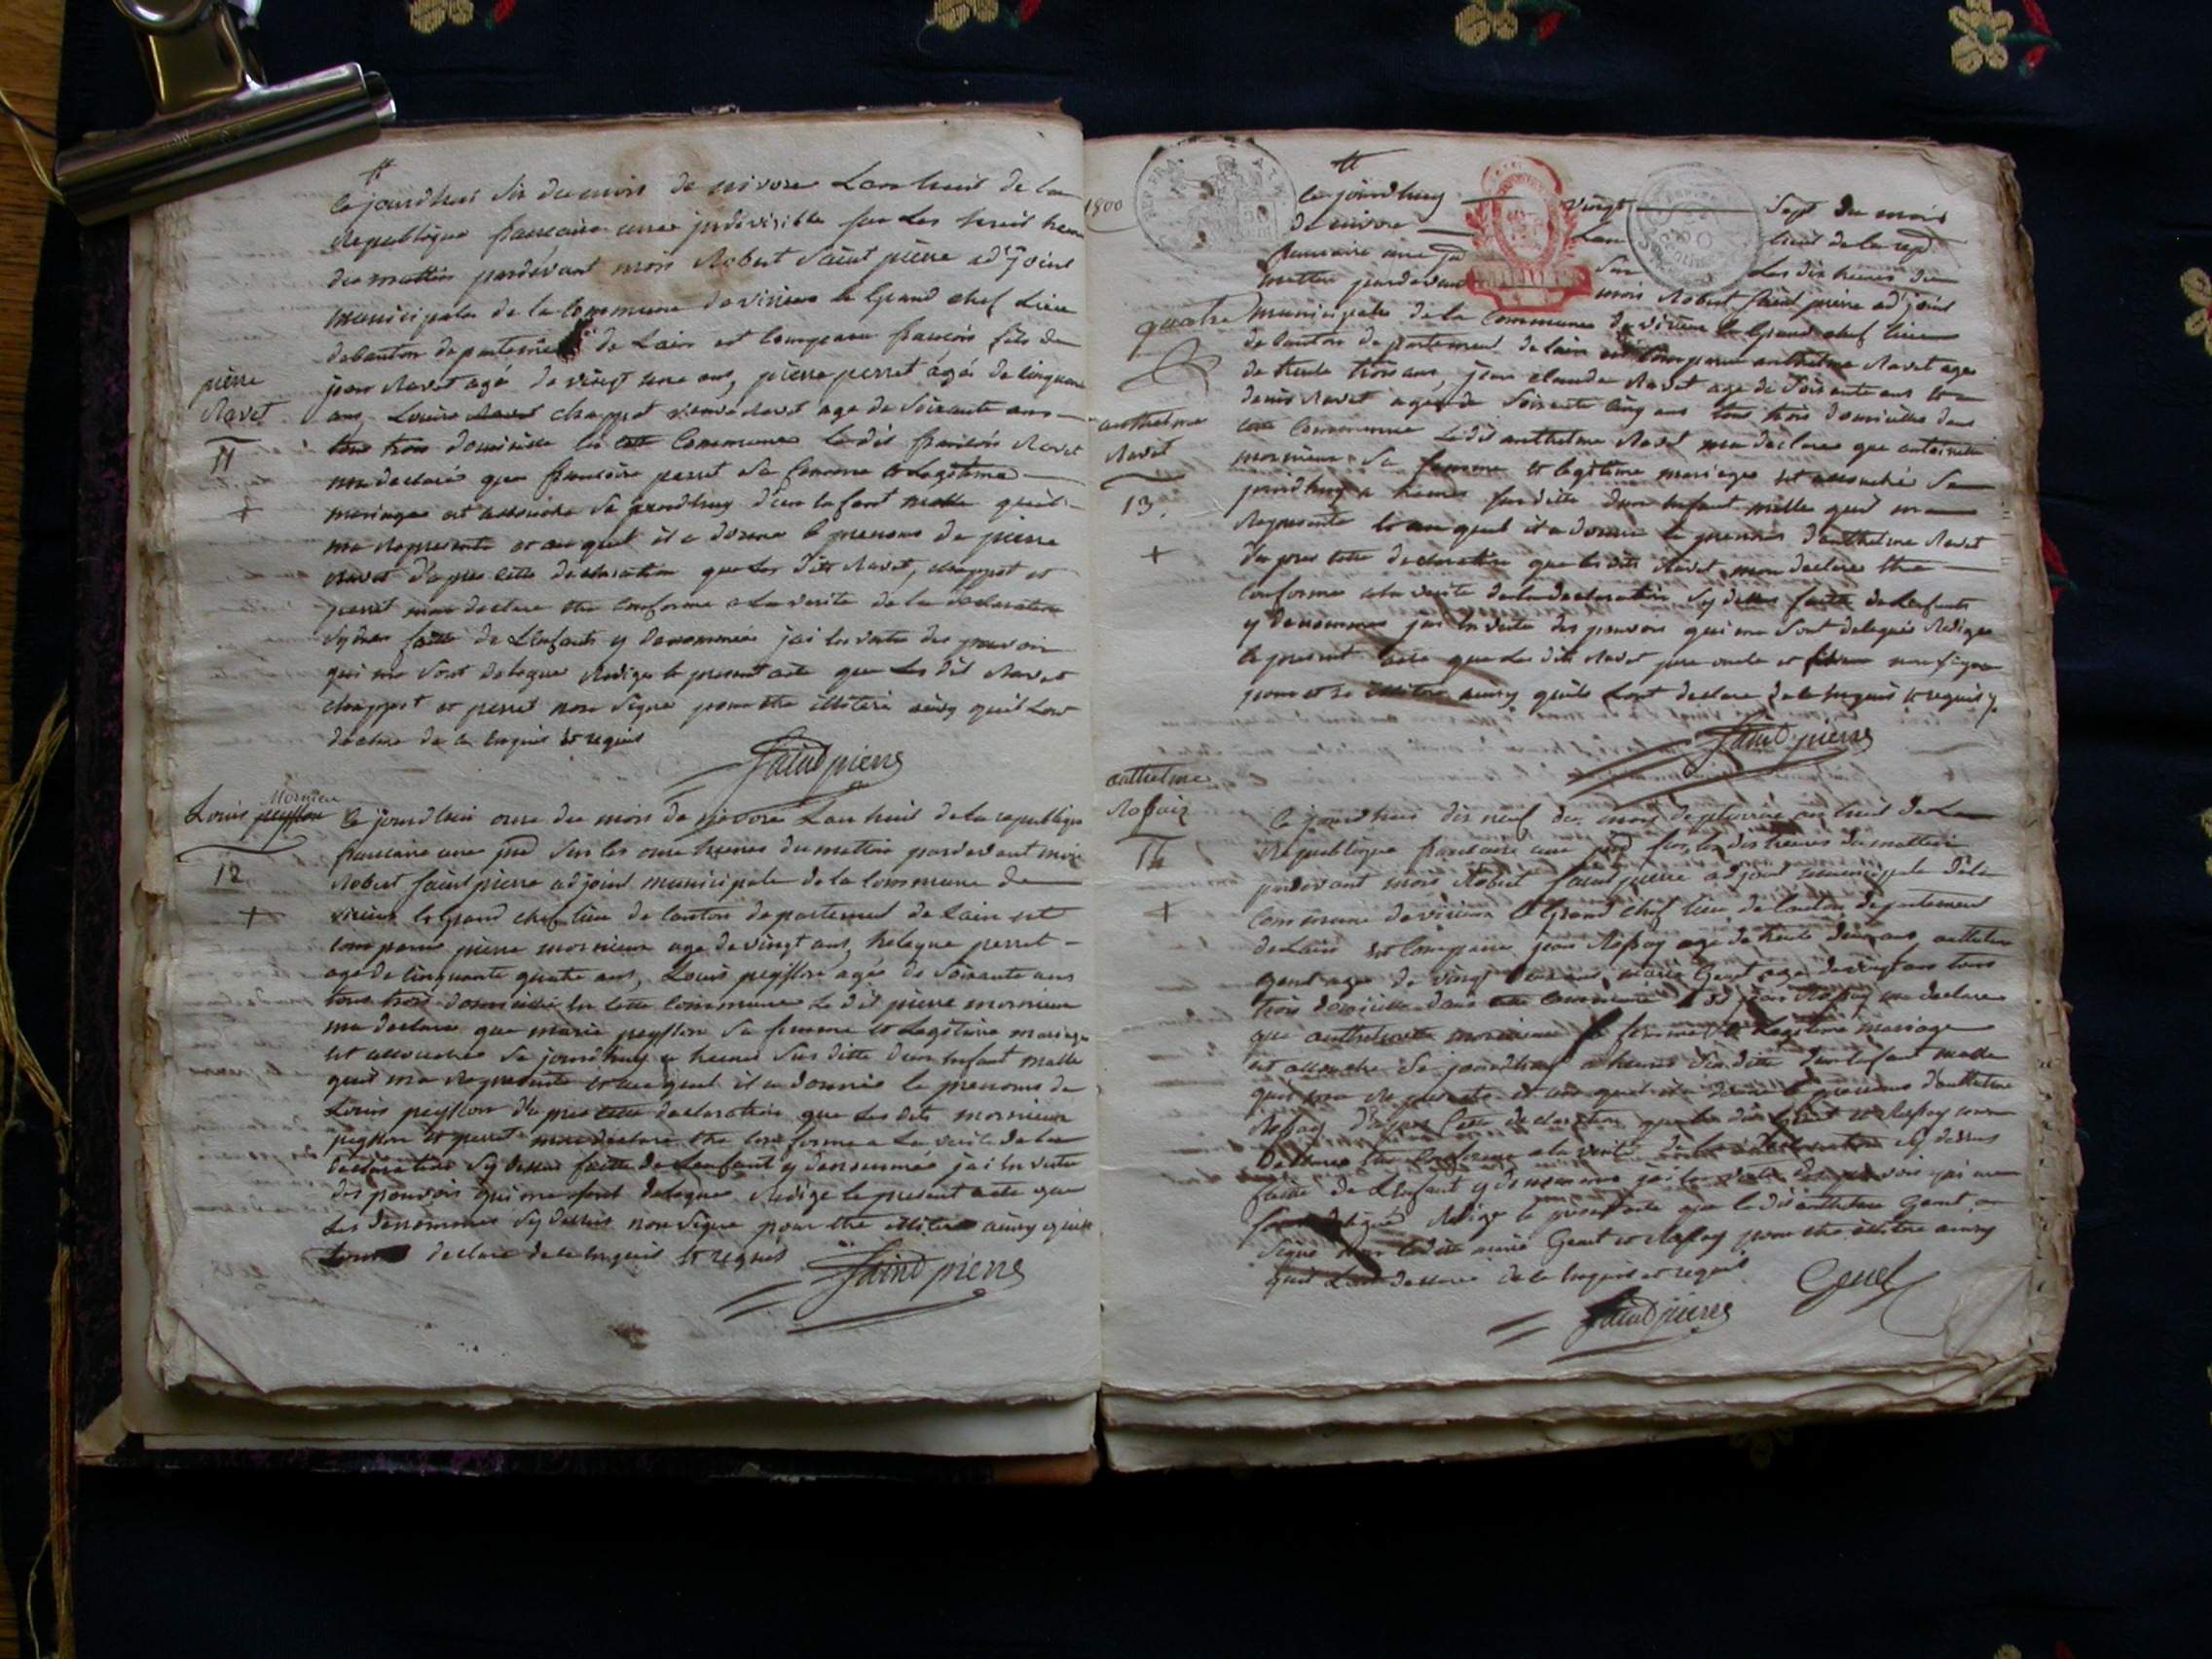 ce jourdhui six du mois de nivose Lan huit de la
republique francaise une indivisible sur les huit heures
du mattin pardevant mois Robert Saint pierre adjoint
municipale de la Commune de virieu le Grand chef Lieu
de Canton departement de Lain est comparu francois fils de
pierre
jean Ravet agé de vingt une ans, pierre perret agés de cinquante
Ravet
ans Louise chappot veuve Ravet age de soixante ans
tous trois domicilie en cette Commune le dit francois Ravet
11
ma declaré que francoise perret sa femme et Legitime
mariage est accouche se jourdhuy d'un enfant malle quil
ma represente et au quel il a donne le prenoms de pierre
Ravet d'apres cette declaration que Les dits Ravet, chappot et
perret mon declare etre conforme a La verite de la declaration
sydesus faitte de Lenfants y denommée jai en vertu des pouvoir
qui me sont delegue Rediger le present acte que Les dit Ravet
chappot et perret non signe pour etre illiteré ainsy quil Lon
declare de ce enquis et requis
Saint pierre
Mornieu
Louis peysson
ce jourdhui onze du mois de nivose Lan huit de la republique
francaise une ind sur les onze heures du mattin pardevant moi
12
Robert saint pierre adjoint municipale de la Commune de
virieu le Grand chef lieu de Canton departement de Lain est
comparu pierre mornieu age de vingt ans, perret
age de cinquante quatre ans, Louis peysson agés de soixante ans
tous trois domicilié en cette Commune Le dit pierre mornieu
ma declare que marie peysson sa femme et Legitime mariage
est accouchee se jourdhuy a heures sus ditte d'un enfant malle
quil ma represente et au quel il a donnée le prenoms de
Louis peysson d'apres cette declaration que Les dits mornieu
peysson et perret mon declare etre conforme a La verite de la
declaration sydessus faitte de Lenfant y denommée jai en vertu
des pouvoir qui me sont delegue Redige le present acte que
Les denommes sydessus non signe pour etre illitere ainsy quils
declare de ce enquis et requis
Saint pierre
1800
ce jourdhuy vingt sept du mois
de nivose Lan huit de la rep
francaise une ind sur Les dix heures du
mattin pardevant mois Robert saint pierre adjoint
quatre
municipale de la Commune de virieu le Grand chef lieu
de Canton departement de Lain est comparu anthelme Ravet age
de trente trois ans, jean claude Ravet age de soixante ans et
anthelme
denis Ravet agés de soixante cinq ans tous trois domicilies dans
Ravet
cette Commune Le dit anthelme Ravet ma declare que antoinette
mornieu sa femme et legitime mariage est accouché se
13.
jourdhuy a heures susditte d'un enfant malle quil ma
Represente et au quel il a donné le prenoms d'anthelme Ravet
d'apres cette declaration que les dits Ravet mon declare etre
conforme a la verite de la declaration sy dessus faitte de Lenfants
y denommes jai en vertu des pouvoir qui me sont delegués Rediger
le present acte que Les dits Ravet pere oncle et non signe
pour etre illitere ainsy quils Lont declare de ce enquis et requis
Saint pierre
anthelme
Rossaiz
ce jourdhui dix neuf du mois de pluviose an huit de La
14
Republique francaise une ind sur les dix heures du mattin
pardevant mois Robert saint pierre adjoint municipale de la
Commune de virieu le Grand chef lieu de Canton departement
de Lain est Comparu jean Rossay age de trente deux ans anthelme
genet age de vingt ans, marie Genet age de vingt ans tous
trois domicilie dans cette Commune Le dit jean Rossay ma declare
que anthelmette mornieu sa femme et Legitime mariage
est accouche se jourdhuy a heures susditte d'un enfant malle
quil ma represente et au quel il a donne le prenoms d'anthelme
Rossay d'apres Cette declaration que les dits Genet et Rossay mon
Declare etre conforme a la verité de la declaration sy dessus
faitte de Lenfant y denommes jai en vertu des pouvoir qui me
sont delegué Redige le present acte que le dit anthelme Genet a
signe non ladite marie Genet et Rossay pour etre illitere ainsy
quil Lon declare de ce enquis et requis
Genet
Saint pierre